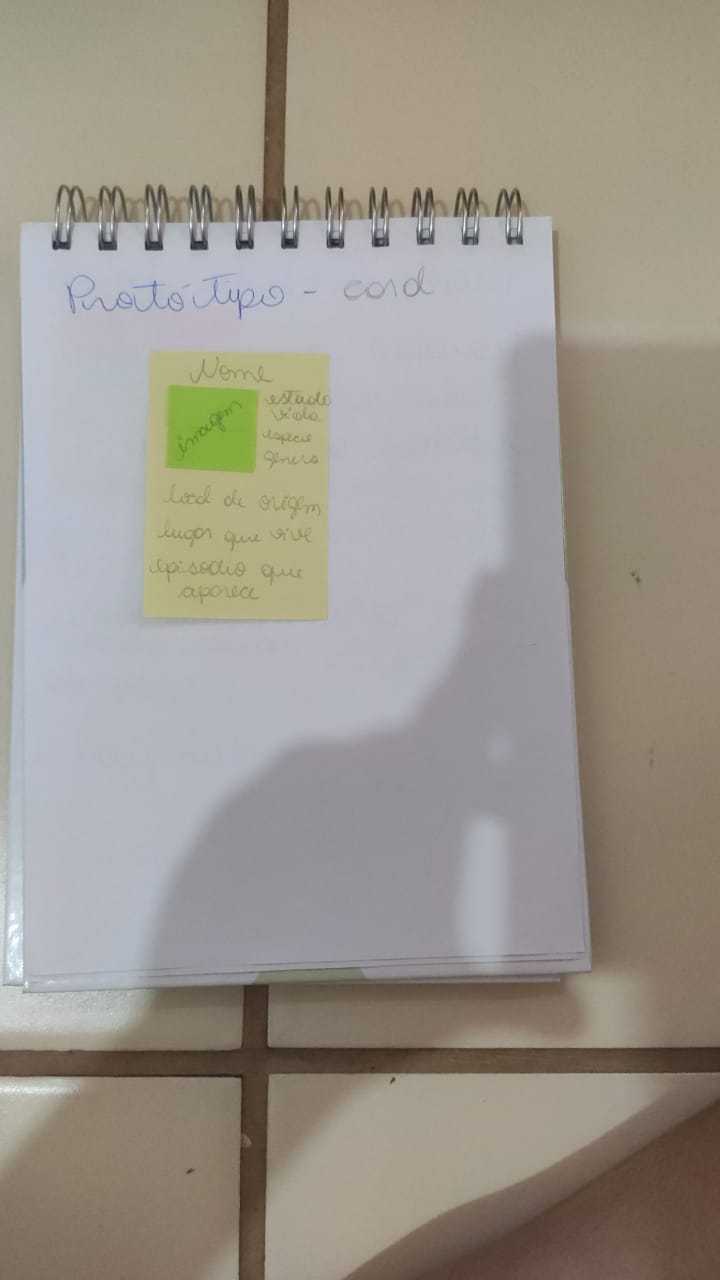 Protótipo - card
Nome
imagem
estado
vida
espécie
gênero
local de origem
lugar que vive
episódio que
aparece